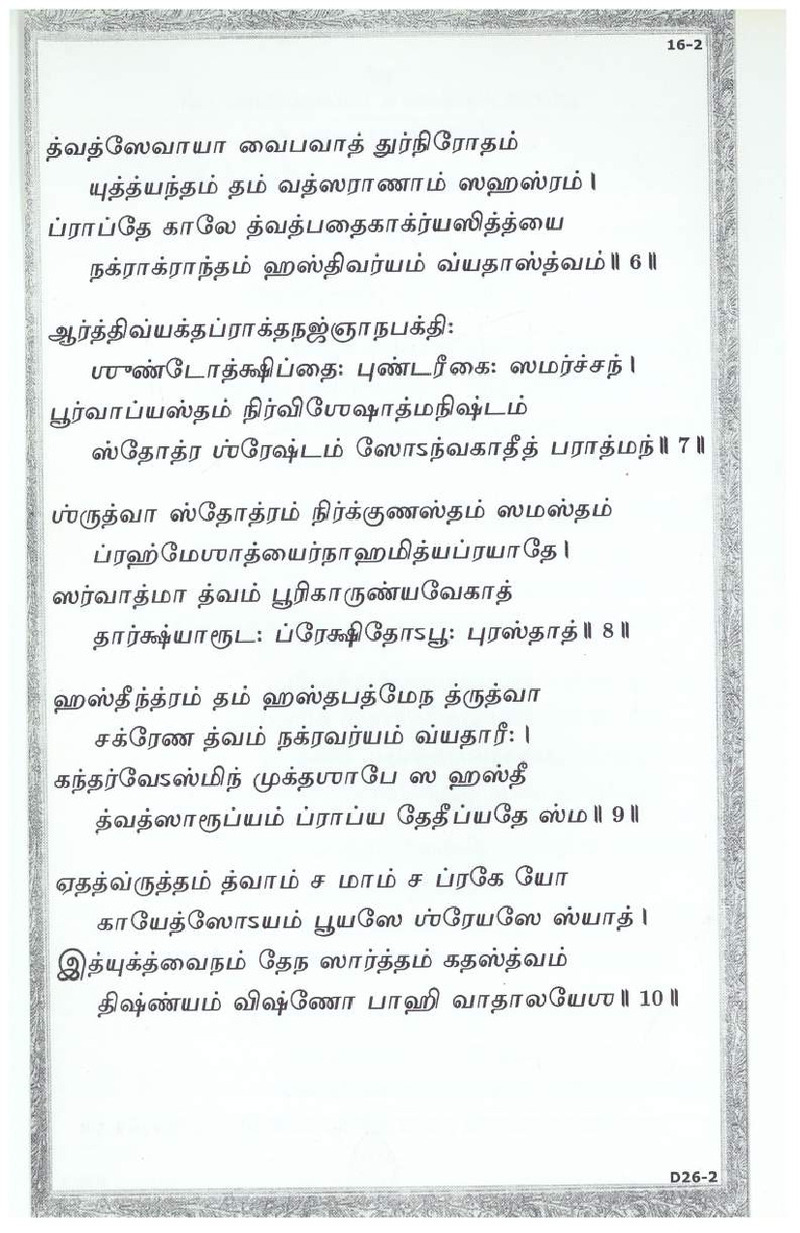 16-2
த்வத்ஸேவாயா வைபவாத் துர்நிரோதம்
யுத்த்யந்தம் தம் வத்ஸராணாம் ஸஹஸ்ரம்।
ப்ராப்தே காலே த்வத்பதைகாக்ர்யஸித்த்யை
நக்ராக்ராந்தம் ஹஸ்திவர்யம் வ்யதாஸ்த்வம்॥ 6 ॥
ஆர்த்திவ்யக்தப்ராக்தநஜ்ஞாநபக்தி:
ஶுண்டோத்க்ஷிப்தை: புண்டரீகை: ஸமர்ச்சந்।
பூர்வாப்யஸ்தம் நிர்விஶேஷாத்மநிஷ்டம்
ஸ்தோத்ர ஶ்ரேஷ்டம் ஸோऽந்வகாதீத் பராத்மந்॥ 7 ॥
ஶ்ருத்வா ஸ்தோத்ரம் நிர்க்குணஸ்தம் ஸமஸ்தம்
ப்ரஹ்மேஶாத்யைர்நாஹமித்யப்ரயாதே।
ஸர்வாத்மா த்வம் பூரிகாருண்யவேகாத்
தார்க்ஷ்யாரூட: ப்ரேக்ஷிதோऽபூ: புரஸ்தாத்॥ 8 ॥
ஹஸ்தீந்த்ரம் தம் ஹஸ்தபத்மேந த்ருத்வா
சக்ரேண த்வம் நக்ரவர்யம் வ்யதாரீ:।
கந்தர்வேऽஸ்மிந் முக்தஶாபே ஸ ஹஸ்தீ
த்வத்ஸாரூப்யம் ப்ராப்ய தேதீப்யதே ஸ்ம॥ 9 ॥
ஏதத்வ்ருத்தம் த்வாம் ச மாம் ச ப்ரகே யோ
காயேத்ஸோऽயம் பூயஸே ஶ்ரேயஸே ஸ்யாத்।
இத்யுக்த்வைநம் தேந ஸார்த்தம் கதஸ்த்வம்
திஷ்ண்யம் விஷ்ணோ பாஹி வாதாலயேஶ॥ 10 ॥
D26-2